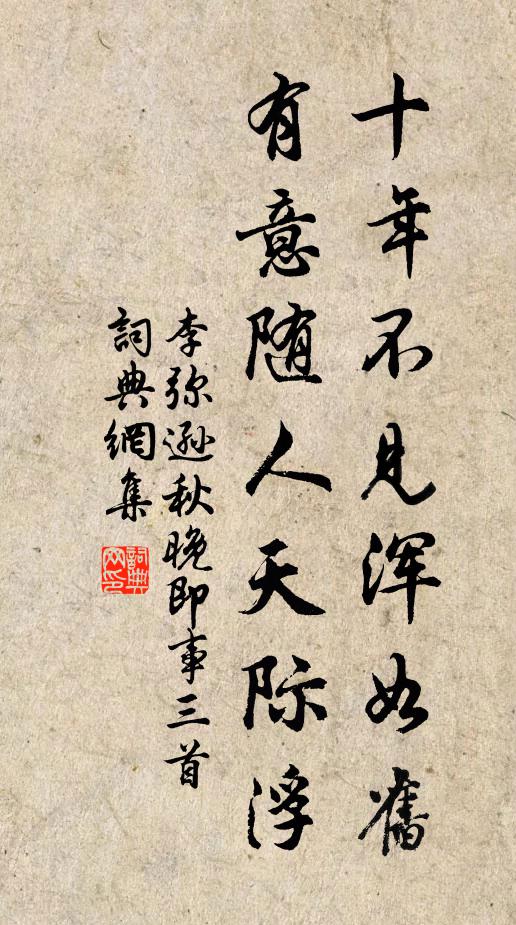 十年不见浑如舊
有意随人天际浮
李弥遜秋晚即事三首
詞典網集
詞典網印